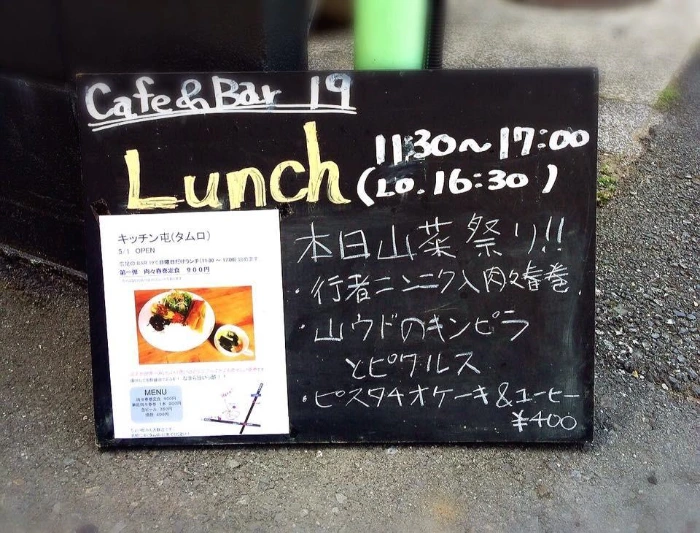 Cafe&Bar 19
Lunch
11:30〜17:00
(Lo. 16:30)
本日山菜祭り!!
・行者ニンニク入肉々春巻
・山ウドのキンピラ
とピクルス
・ピスタチオケーキ&コーヒー
¥400
キッチン屯(タムロ)
5/1 OPEN
第一弾 肉々春巻定食 900円
MENU